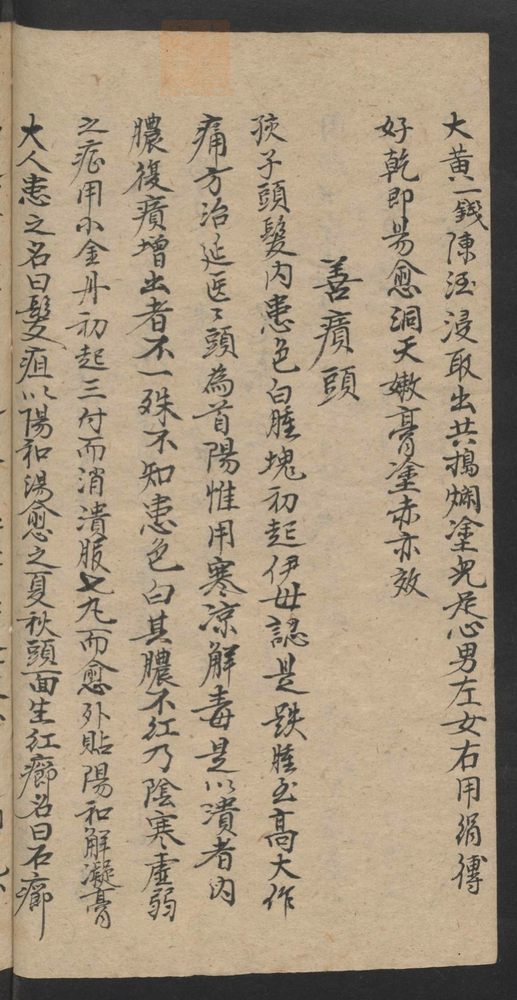 大黃一錢陳酒浸取出共搗爛塗児足心男左女右用絹縛
好乾即易愈洞天嫩膏塗赤亦效
善㿀頭
孩子頭髮内患色白腫塊初起伊母認是跌腫至高大作
痛方治延医〻頭為首陽惟用寒凉解毒是以潰者内
膿復㿀增出者不一殊不知患色白其膿不紅乃陰寒虛弱
之症用小金丹初起三付而消潰服七九而愈外貼陽和解凝膏
大人患之名曰髮疽以陽和湯愈之夏秋頭面生紅癤名曰石癤